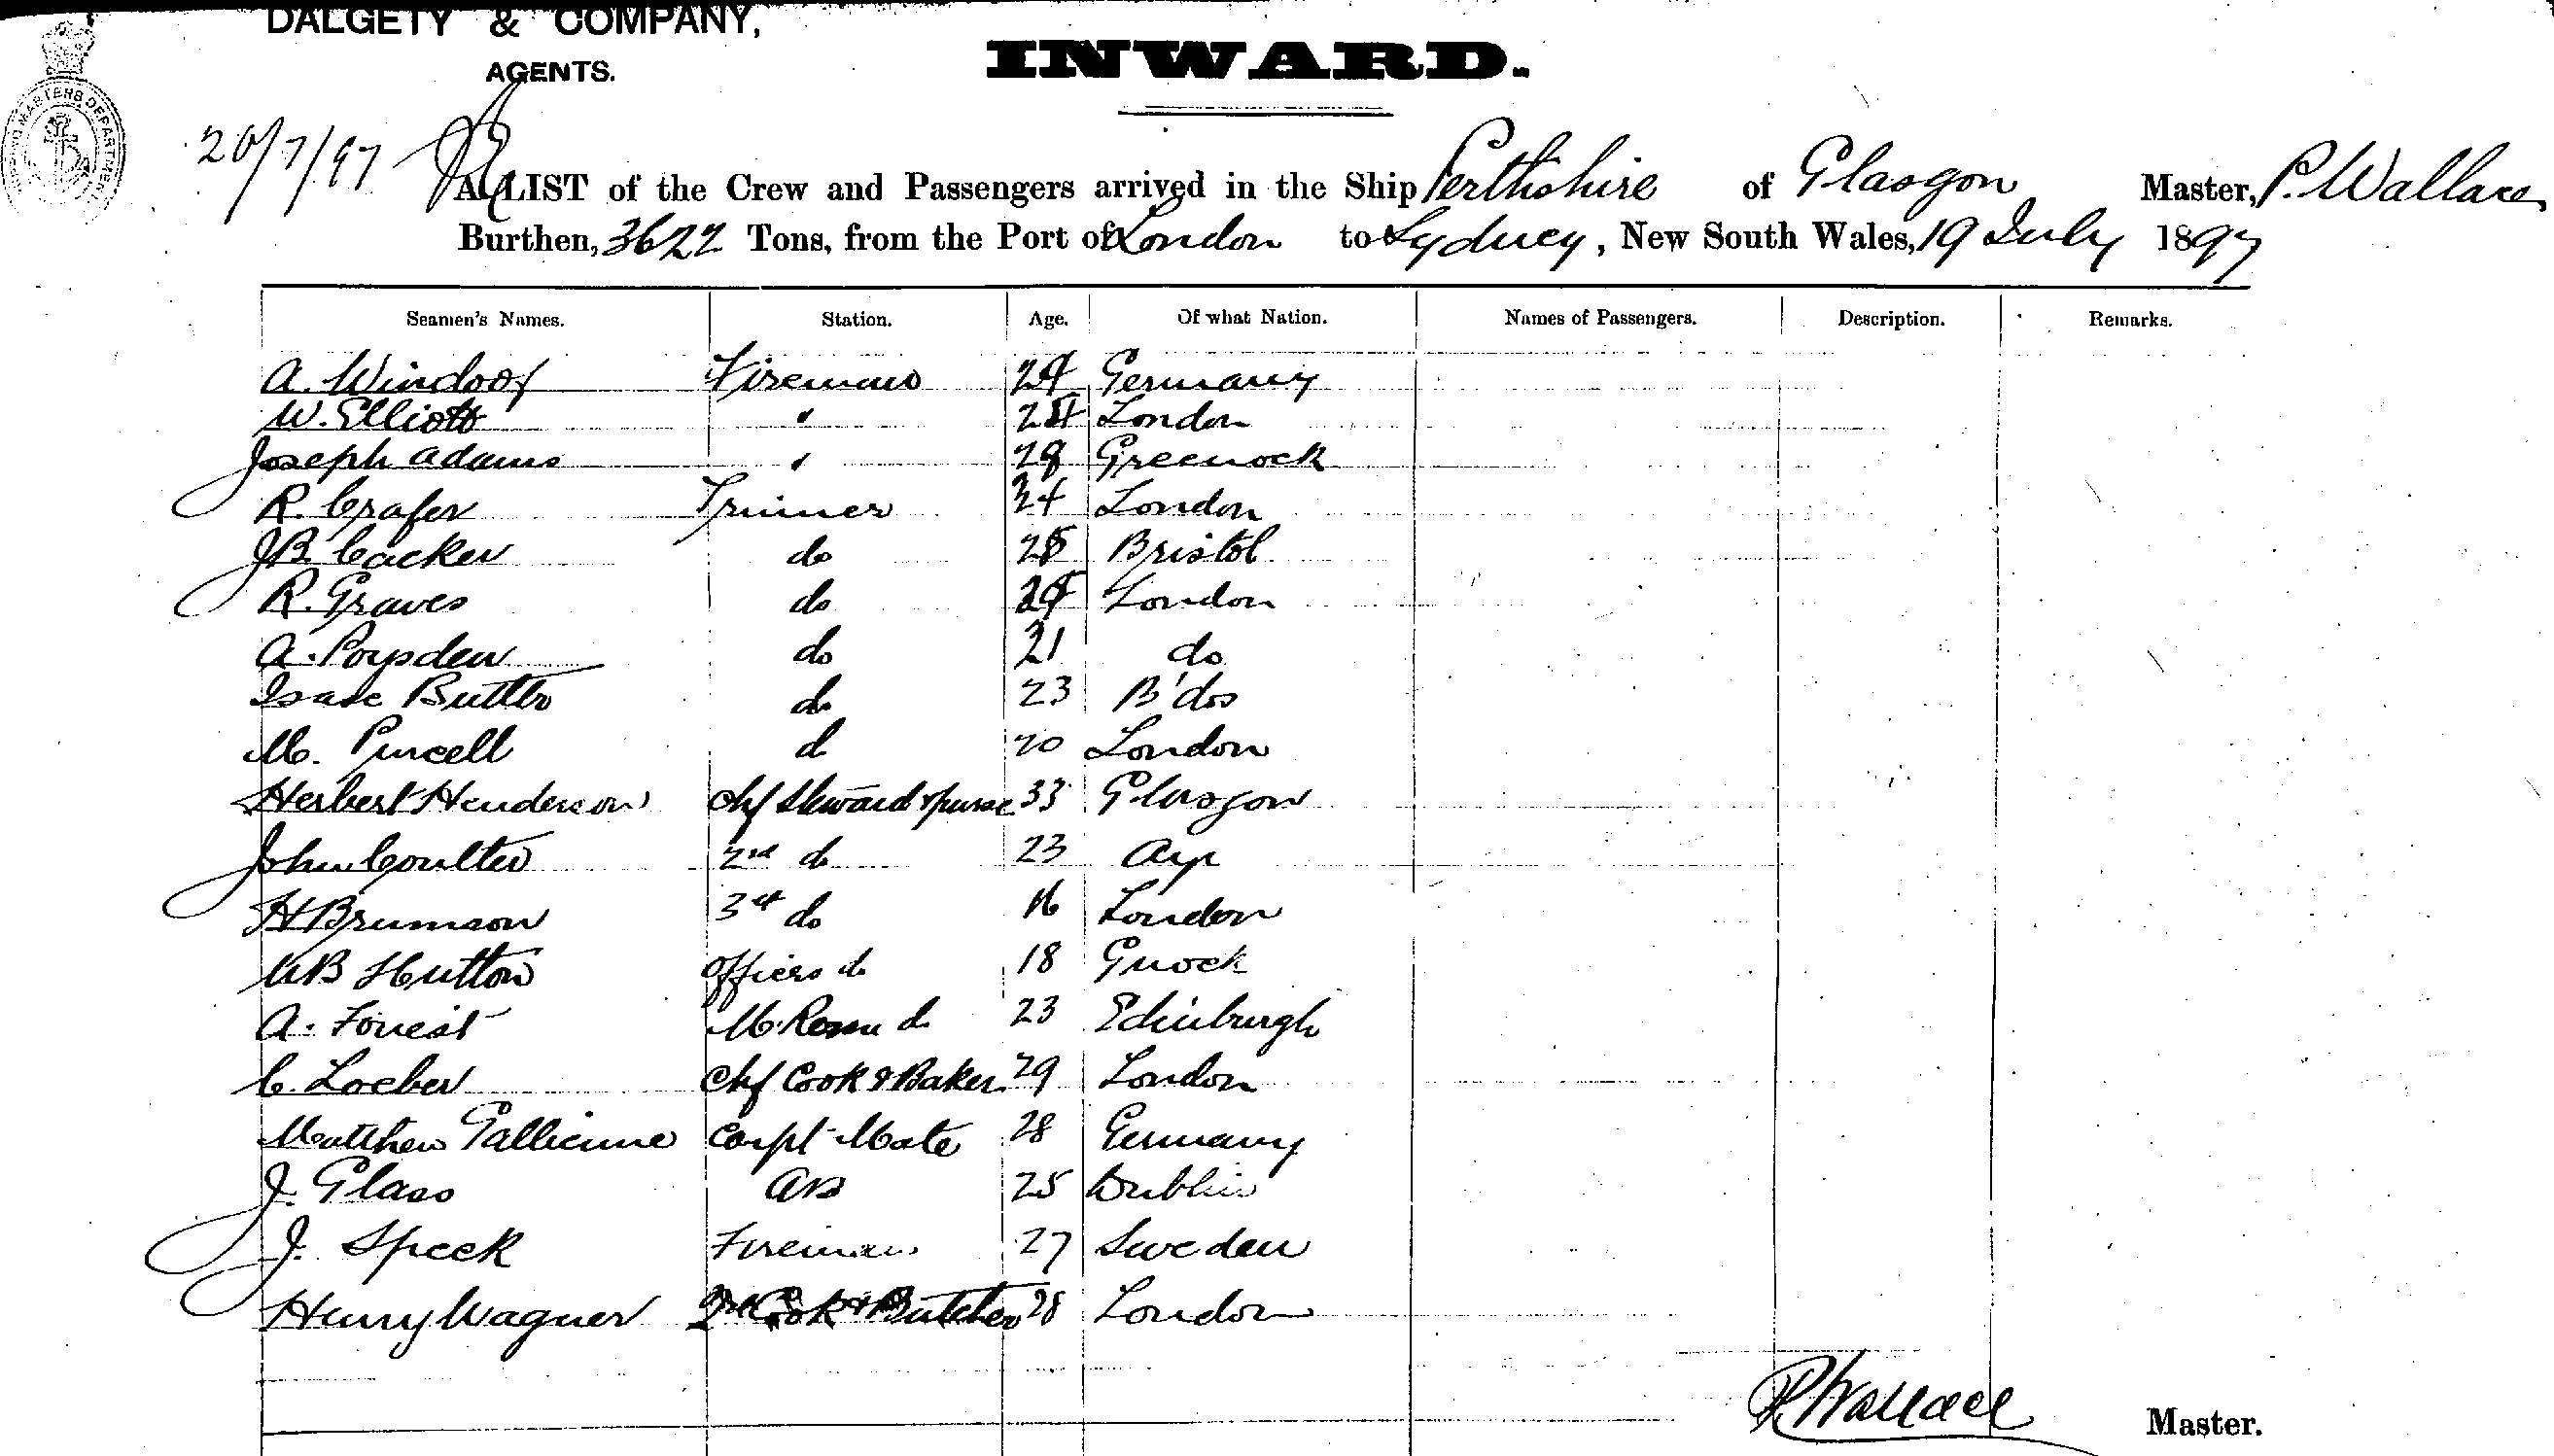 DALGETY & COMPANY,
AGENTS.
INWARD.
20/7/97
A LIST of the Crew and Passengers arrived in the Ship Perthshire of Glasgow Master, P. Wallace
Burthen, 3622 Tons, from the Port of London to Sydney, New South Wales, 19 July 1897
Seamen's Names. Station. Age. Of what Nation. Names of Passengers. Description. Remarks.
A. Windoof Fireman 24 Germany
W. Elliott " 24 London
Joseph Adams " 28 Greenock
R. Crafer Trimer 24 London
J B Cacker do 25 Bristol
R. Graves do 24 London
A. Poysden do 21 do
Isaac Butler do 23 B'dos
M. Purcell do 20 London
Herbert Henderson Chf Steward & purser 33 Glasgow
John Coulter 2nd do 23 Ayr
H Brumson 3rd do 16 London
Hutton Officers do 18 Gnock
A. Forrest M. Room do 23 Edinburgh
C. Loeber Chf Cook & Baker 29 London
Matthew Gallienne Carpt Mate 28 Germany
J. Glass AB 25 Dublin
J. Speek Fireman 27 Sweden
Henry Wagner 2nd Cook & Butcher 28 London
P. Wallace Master.